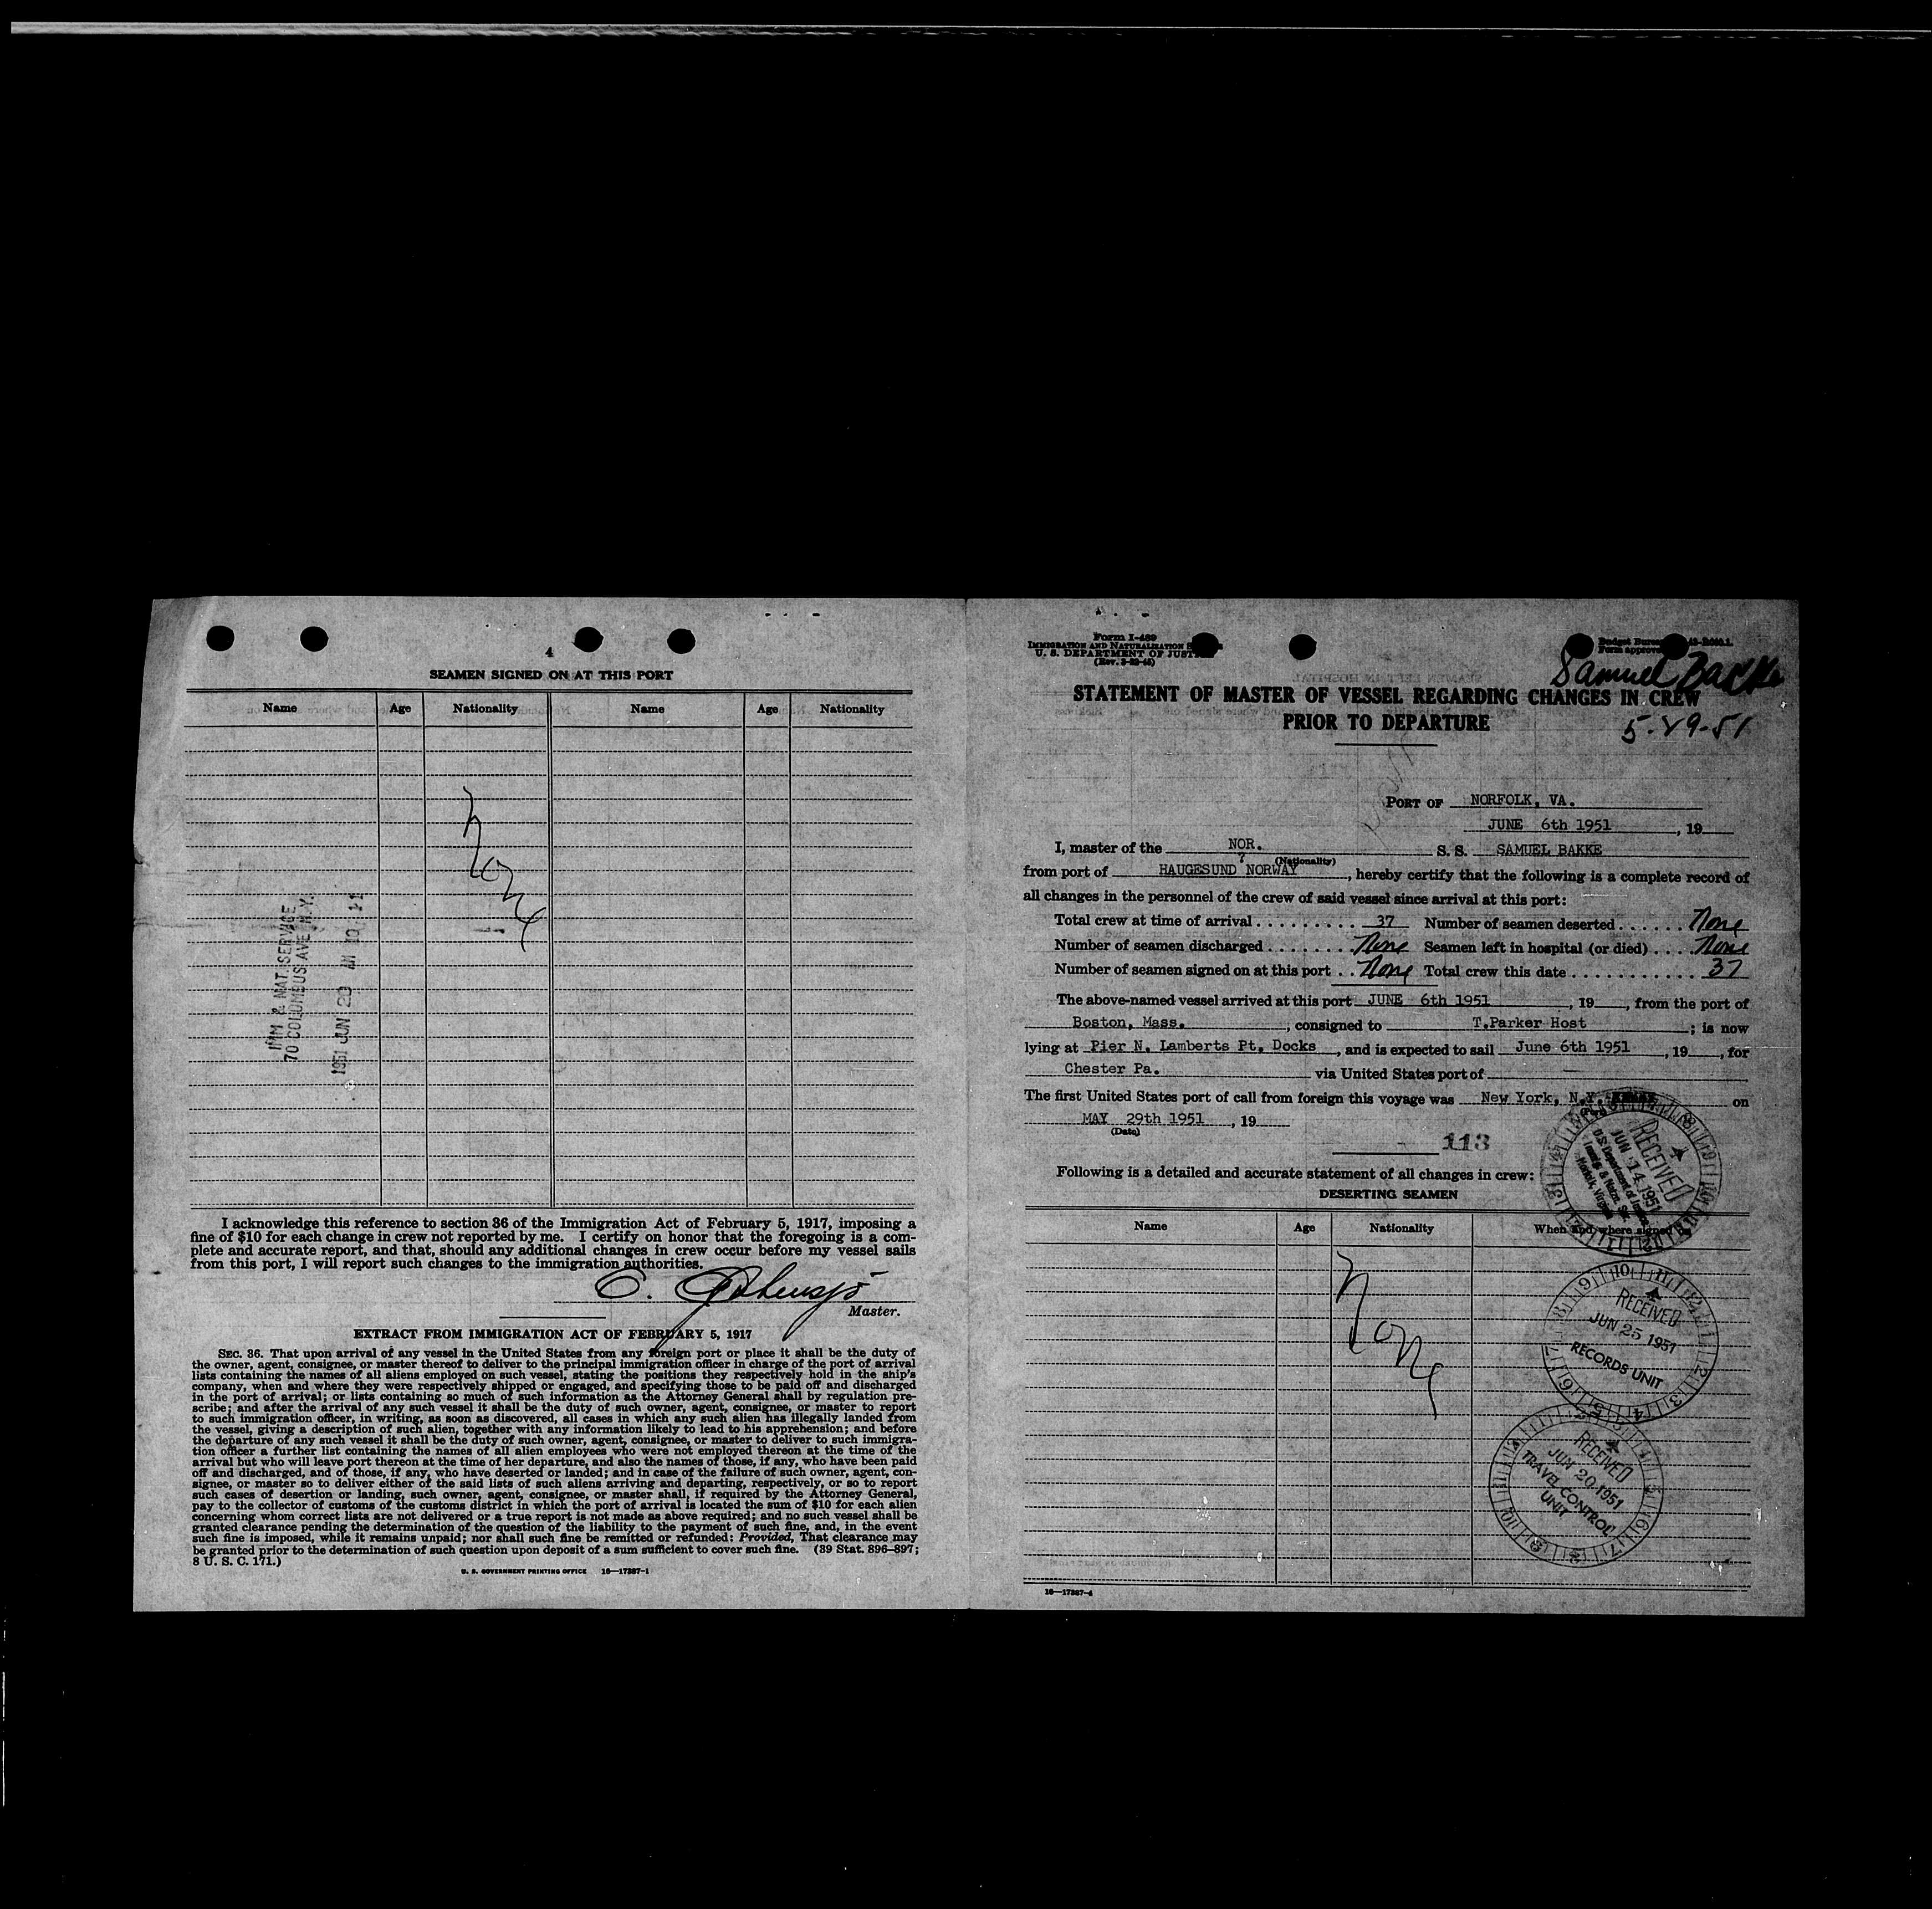 4
SEAMEN SIGNED ON AT THIS PORT
Name Age Nationality Name Age Nationality
None
IMM & NAT. SERVICE
70 COLUMBUS AVE N.Y.
1951 JUN 20 AM 10 11
I acknowledge this reference to section 36 of the Immigration Act of February 5, 1917, imposing a
fine of $10 for each change in crew not reported by me. I certify on honor that the foregoing is a com-
plete and accurate report, and that, should any additional changes in crew occur before my vessel sails
from this port, I will report such changes to the immigration authorities.
Master.
EXTRACT FROM IMMIGRATION ACT OF FEBRUARY 5, 1917
SEC. 36. That upon arrival of any vessel in the United States from any foreign port or place it shall be the duty of
the owner, agent, consignee, or master thereof to deliver to the principal immigration officer in charge of the port of arrival
lists containing the names of all aliens employed on such vessel, stating the positions they respectively hold in the ship's
company, when and where they were respectively shipped or engaged, and specifying those to be paid off and discharged
in the port of arrival; or lists containing so much of such information as the Attorney General shall by regulation pre-
scribe; and after the arrival of any such vessel it shall be the duty of such owner, agent, consignee, or master to report
to such immigration officer, in writing, as soon as discovered, all cases in which any such alien has illegally landed from
the vessel, giving a description of such alien, together with any information likely to lead to his apprehension; and before
the departure of any such vessel it shall be the duty of such owner, agent, consignee, or master to deliver to such immigra-
tion officer a further list containing the names of all alien employees who were not employed thereon at the time of the
arrival but who will leave port thereon at the time of her departure, and also the names of those, if any, who have been paid
off and discharged, and of those, if any, who have deserted or landed; and in case of the failure of such owner, agent, con-
signee, or master so to deliver either of the said lists of such aliens arriving and departing, respectively, or so to report
such cases of desertion or landing, such owner, agent, consignee, or master shall, if required by the Attorney General,
pay to the collector of customs of the customs district in which the port of arrival is located the sum of $10 for each alien
concerning whom correct lists are not delivered or a true report is not made as above required; and no such vessel shall be
granted clearance pending the determination of the question of the liability to the payment of such fine, and, in the event
such fine is imposed, while it remains unpaid; nor shall such fine be remitted or refunded: Provided, That clearance may
be granted prior to the determination of such question upon deposit of a sum sufficient to cover such fine. (39 Stat. 896–897;
8 U. S. C. 171.)
U. S. GOVERNMENT PRINTING OFFICE 16—17387-1
Form I-489
IMMIGRATION AND NATURALIZATION
U. S. DEPARTMENT OF JUST
Budget Bureau
Form approve
Samuel Bakke
STATEMENT OF MASTER OF VESSEL REGARDING CHANGES IN CREW
PRIOR TO DEPARTURE
5-29-51
PORT OF NORFOLK, VA.
JUNE 6th 1951, 19
I, master of the NOR. S. S. SAMUEL BAKKE
(Nationality)
from port of HAUGESUND NORWAY, hereby certify that the following is a complete record of
all changes in the personnel of the crew of said vessel since arrival at this port:
Total crew at time of arrival 37 Number of seamen deserted None
Number of seamen discharged None Seamen left in hospital (or died) None
Number of seamen signed on at this port None Total crew this date 37
The above-named vessel arrived at this port JUNE 6th 1951, 19, from the port of
Boston, Mass.; consigned to T.Parker Host; is now
lying at Pier N. Lamberts Pt. Docks, and is expected to sail June 6th 1951, 19, for
Chester Pa. via United States port of
The first United States port of call from foreign this voyage was New York, N.Y. on
MAY 29th 1951, 19
(Date)
113
Following is a detailed and accurate statement of all changes in crew:
DESERTING SEAMEN
Name Age Nationality When and where signed on
None
RECEIVED
JUN 14 1951
U.S. Department of Justice
Norfolk, Virginia
RECEIVED
JUN 25 1951
RECORDS UNIT
RECEIVED
JUN 20 1951
TRAVEL CONTROL
UNIT
16—17387-4